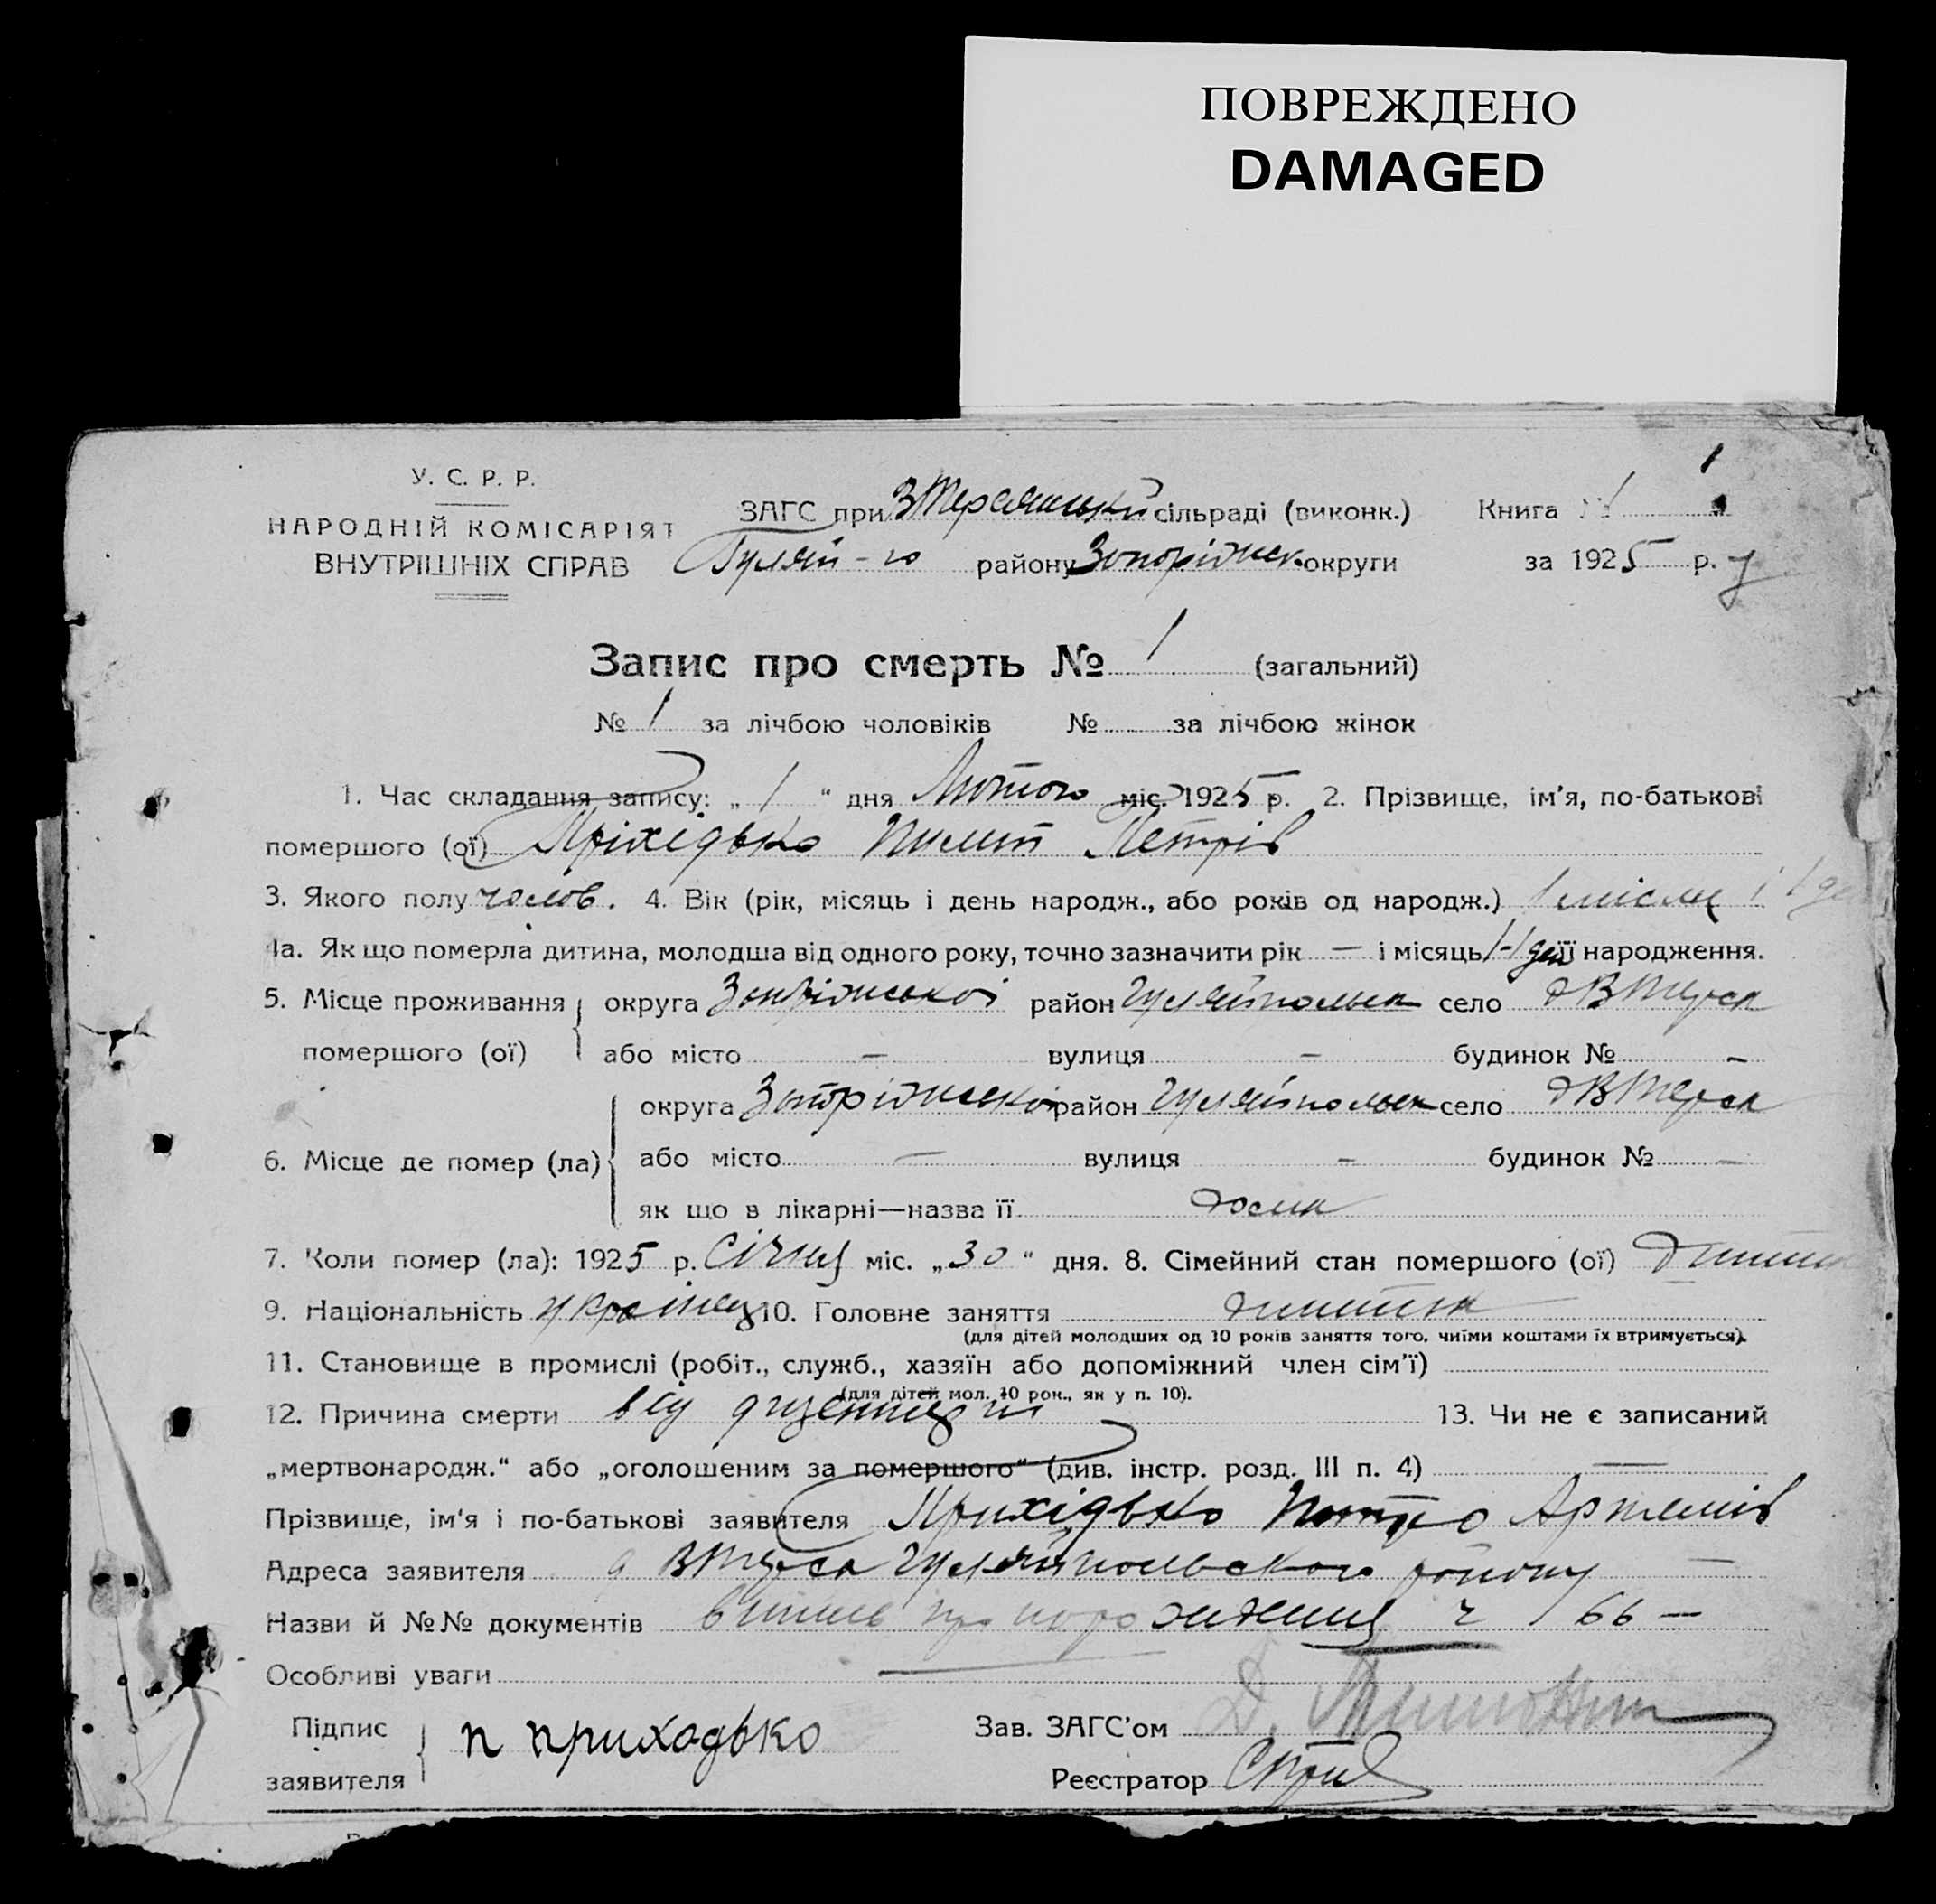 ПОВРЕЖДЕНО
DAMAGED
У. С. Р. Р.
НАРОДНІЙ КОМІСАРІЯТ
ВНУТРІШНІХ СПРАВ
ЗАГС при сільраді (виконк.)
Гуляй-го району Запоріжск. округи
Книга 1
1
за 1925 р.
Запис про смерть № 1 (загальний)
№ 1 за лічбою чоловіків № за лічбою жінок
1. Час складання запису: „ 1 “ дня Лютого міс. 1925 р. 2. Прізвище, ім'я, по-батькові
помершого (ої) Пріхідько Пилип Петрів
3. Якого полу чолов. 4. Вік (рік, місяць і день народж., або років од народж.) 1 місяц і 1 де
4а. Як що померла дитина, молодша від одного року, точно зазначити рік — і місяць 1-1 ден її народження.
5. Місце проживання округа Запоріжської район Гуляйпольск село
помершого (ої) або місто — вулиця — будинок № —
округа Запоріжської район Гуляйпольск село
6. Місце де помер (ла) або місто — вулиця — будинок № —
як що в лікарні—назва її дома
7. Коли помер (ла): 1925 р. Січня міс. „30“ дня. 8. Сімейний стан помершого (ої) Дитин
9. Національність украінец 10. Головне заняття дитина
(для дітей молодших од 10 років заняття того, чиїми коштами їх втримується).
11. Становище в промислі (робіт., служб., хазяїн або допоміжний член сім'ї)
(для дітей мол. 10 рок., як у п. 10).
12. Причина смерти від дизентерії 13. Чи не є записаний
„мертвонародж.“ або „оголошеним за помершого“ (див. інстр. розд. III п. 4) —
Прізвище, ім'я і по-батькові заявителя Прихідько Петро Артемів
Адреса заявителя Гуляйпольского району —
Назви й №№ документів витяг про народження ч 166 —
Особливі уваги —
Підпис
заявителя п приходько
Зав. ЗАГС'ом
Реєстратор